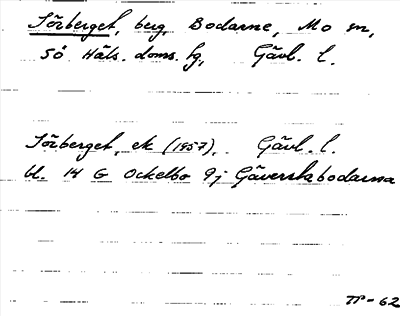 Sörberget, berg, Bodarne, Mo sn,
Sö Häls. doms. fg, Gävl. l.
Sörberget, ek (1957), Gävl. l.
bl. 14 G Ockelbo 9j Gäverstabodarna
TP-62